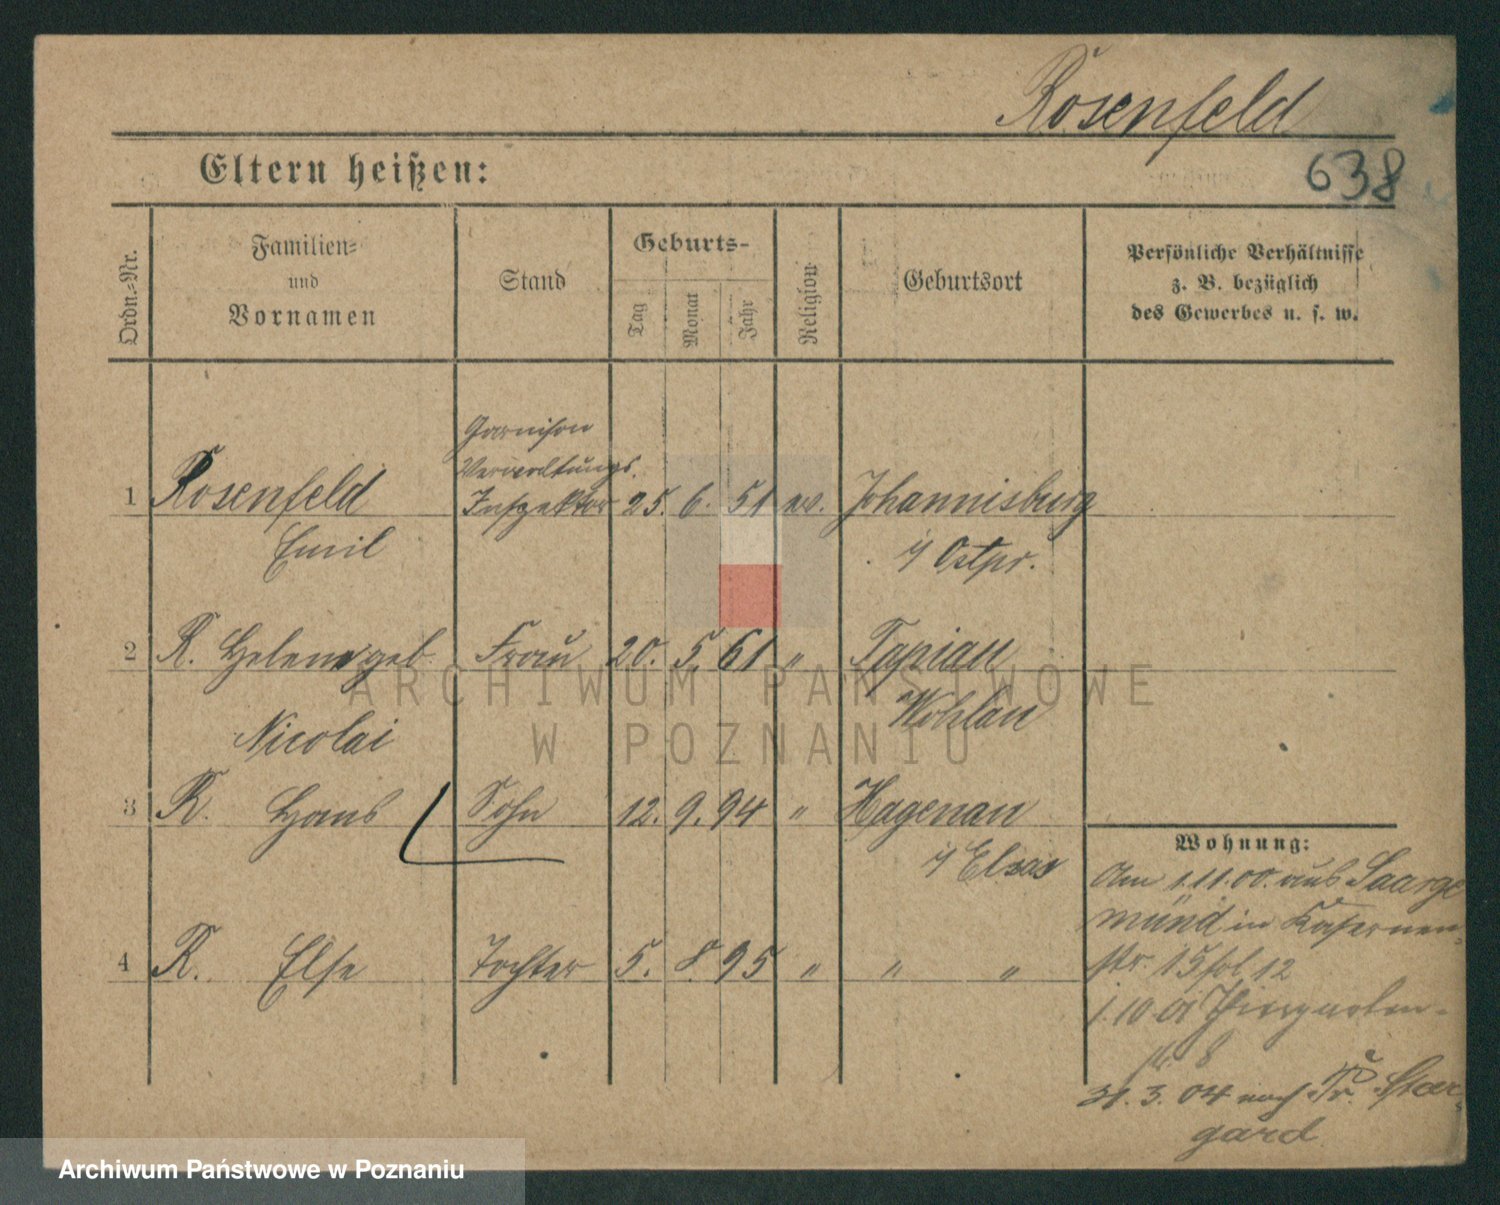 Rosenfeld
638
Eltern heißen:
Ordn.-Nr.
Familien-
und
Vornamen
Stand
Geburts-
Tag
Monat
Jahr
Religion
Geburtsort
Persönliche Verhältnisse
z. B. bezüglich
des Gewerbes u. s. w.
Garnison
Verwaltungs.
1 Rosenfeld Inspektor 25. 6. 51 ev. Johannisburg
Emil i/ Ostpr.
2 R. Helene geb. Frau 20. 5. 61 " Tapiau
Nicolai Wohlau
3 R. Hans Sohn 12. 9. 94 " Hagenau
i/ Elsas
4 R. Else Tochter 5. 8. 95 " " "
Wohnung:
Am 1.11.00. aus Saarge
münd in Kasernen-
str. 15 12
1.10.01
8
31. 3. 04 nach Pr. Star-
gard
ARCHIWUM PAŃSTWOWE
W POZNANIU
Archiwum Państwowe w Poznaniu